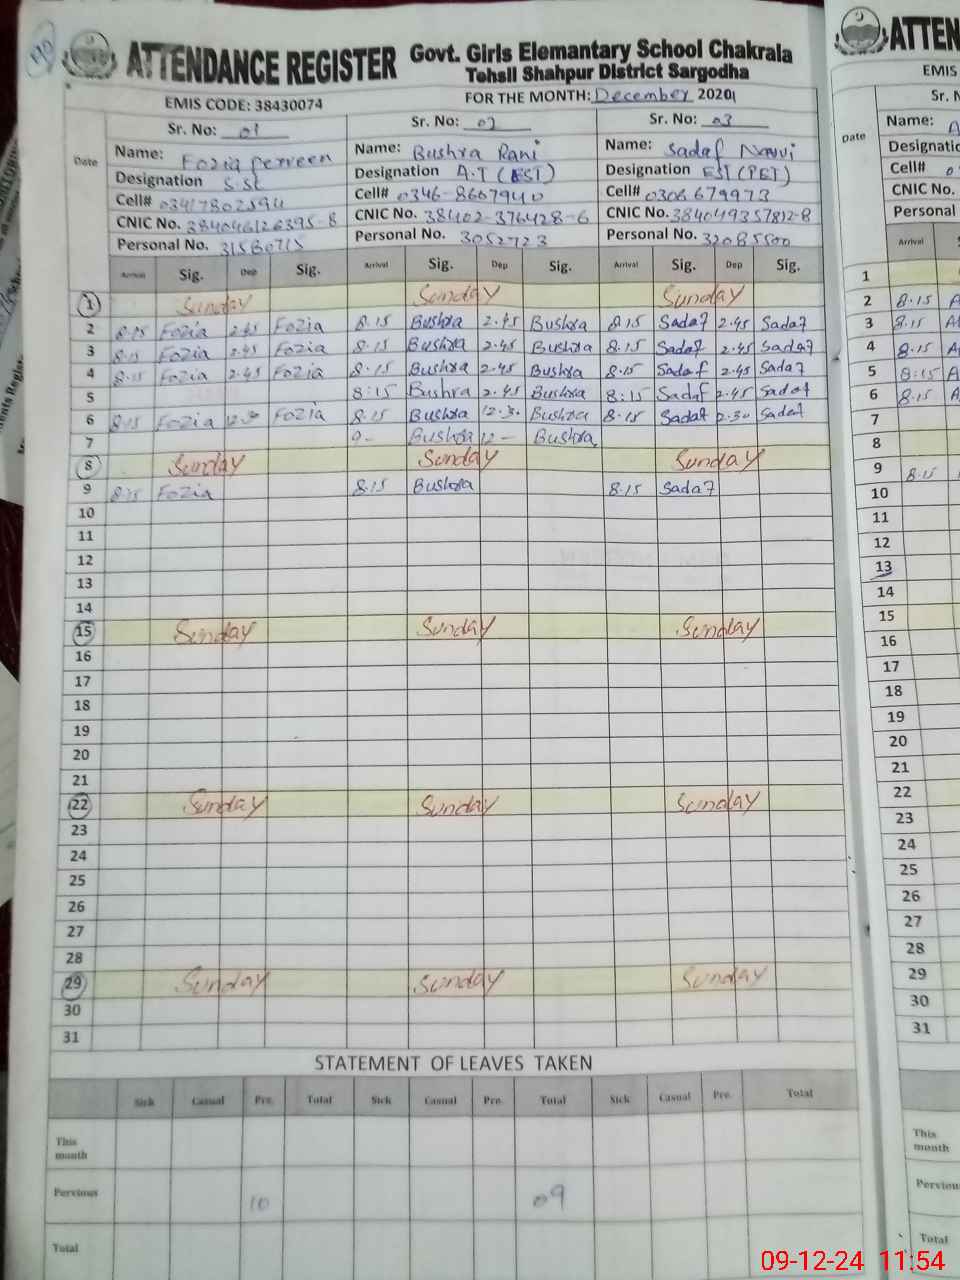 ATTENDANCE REGISTER Govt. Girls Elemantary School Chakrala
Tehsil Shahpur District Sargodha
EMIS CODE: 38430074 FOR THE MONTH: December 2020
Sr. No: 01 Sr. No: 02 Sr. No: 03
Date
Name: Fozia perveen Name: Bushra Rani Name: Sadaf
Designation S.St Designation A.T (EST) Designation EST (PET)
Cell# 03417802594 Cell# 0346-8607940 Cell# 0306679973
CNIC No. 384046126395-8 CNIC No. 38402-376428-6 CNIC No. 384049357812-8
Personal No. 31580715 Personal No. 3052723 Personal No. 32085500
Arrival Sig. Dep Sig. Arrival Sig. Dep Sig. Arrival Sig. Dep Sig.
1 Sunday Sunday Sunday
2 8.15 Fozia 2.45 Fozia 8.15 Bushra 2.45 Bushra 8.15 Sadaf 2.45 Sadaf
3 8.15 Fozia 2.45 Fozia 8.15 Bushra 2.45 Bushra 8.15 Sadaf 2.45 Sadaf
4 8.15 Fozia 2.45 Fozia 8.15 Bushra 2.45 Bushra 8.15 Sadaf 2.45 Sadaf
5 8:15 Bushra 2.45 Bushra 8:15 Sadaf 2.45 Sadaf
6 8.15 Fozia 12.30 Fozia 8.15 Bushra 12.30 Bushra 8.15 Sadaf 2.30 Sadaf
7 9- Bushra 12- Bushra
8 Sunday Sunday Sunday
9 8.15 Fozia 8.15 Bushra 8.15 Sadaf
10
11
12
13
14
15 Sunday Sunday Sunday
16
17
18
19
20
21
22 Sunday Sunday Sunday
23
24
25
26
27
28
29 Sunday Sunday Sunday
30
31
STATEMENT OF LEAVES TAKEN
Sick Casual Pre. Total Sick Casual Pre. Total Sick Casual Pre. Total
This month
Pervious 10 09
Total
ATTEN
EMIS
Sr. N
Date
Name: A
Designatio
Cell# 0
CNIC No.
Personal
Arrival
1
2 8.15 A
3 8.15 A
4 8.15 A
5 8:15 A
6 8.15 A
7
8
9 8.15
10
11
12
13
14
15
16
17
18
19
20
21
22
23
24
25
26
27
28
29
30
31
This month
Perviou
Total
09-12-24 11:54